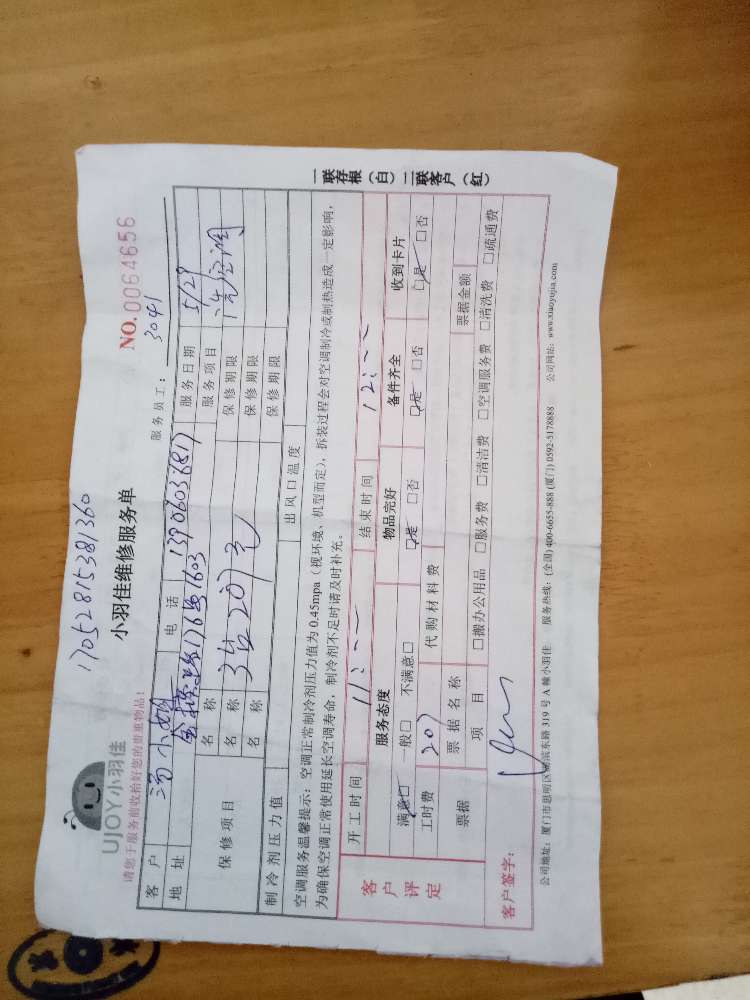 17052815381360
UJOY小羽佳
小羽佳维修服务单
NO.0064656
请您于服务前收拾好您的贵重物品!
服务员工: 3041
客户 汤小姐 电话 13906036817 服务日期 5/29
地址 176号1603 服务项目 洗空调
保修项目 名称 保修期限
名称 3台207元 保修期限
名称 保修期限
制冷剂压力值 出风口温度
空调服务温馨提示:空调正常制冷剂压力值为 0.45mpa(视环境、机型而定),拆装过程会对空调制冷或制热造成一定影响,
为确保空调正常使用延长空调寿命,制冷剂不足时请及时补充。
客户评定
开工时间 11:-- 结束时间 12:--
服务态度 物品完好 备件齐全 收到卡片
满意☑ 一般□ 不满意□ ☑是 □否 ☑是 □否 ☑是 □否
工时费 207 代购材料费
票据 票据名称 票据金额
项目 □搬办公用品 □服务费 □清洁费 □空调服务费 □清洗费 □疏通费
客户签字:
公司地址:厦门市思明区湖滨东路 319 号 A 幢小羽佳 服务热线:(全国)400-6655-888 (厦门)0592-5178888 公司网站:www.xiaoyujia.com
一联存根(白)二联客户(红)